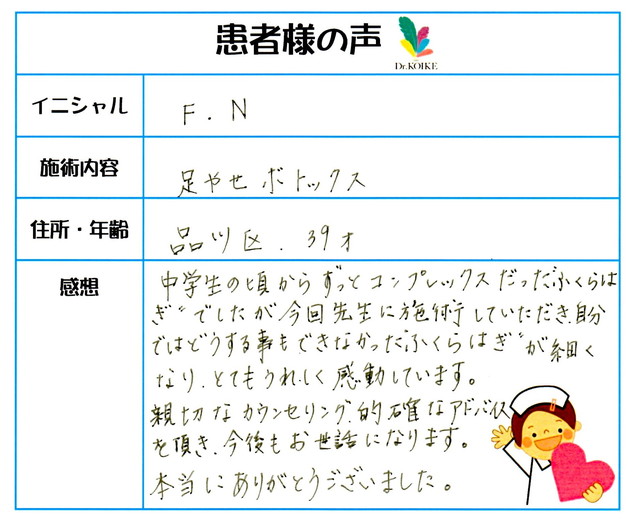 患者様の声
Dr.KOIKE
イニシャル
F.N
施術内容
足やせボトックス
住所・年齢
品川区.39才
感想
中学生の頃からずっとコンプレックスだったふくらは
ぎでしたが今回先生に施術していただき、自分
ではどうする事もできなかったふくらはぎが細く
なり、とてもうれしく感動しています。
親切なカウンセリング、的確なアドバイス
を頂き、今後もお世話になります。
本当にありがとうございました。